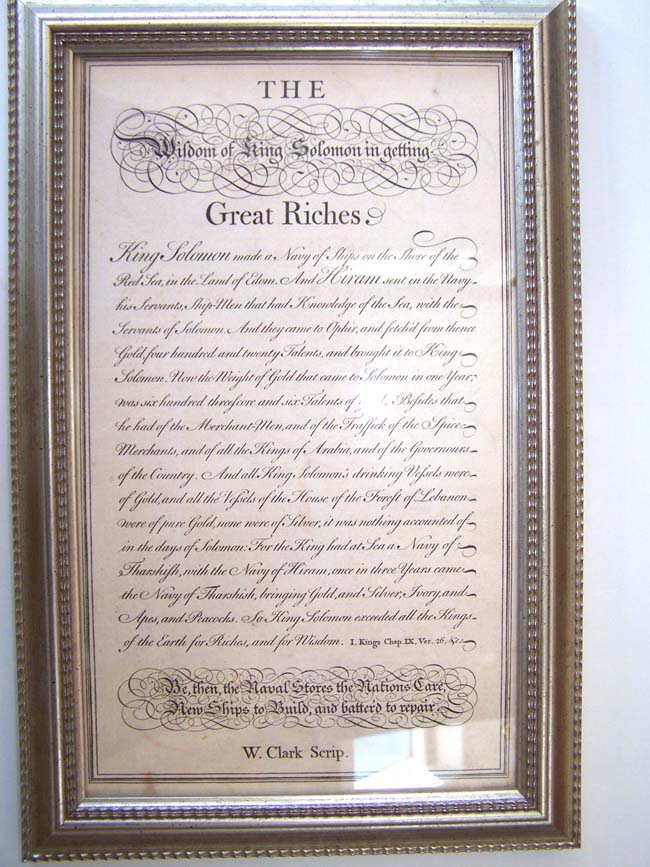 THE
Wisdom of King Solomon in getting
Great Riches.
King Solomon made a Navy of Ships on the Shore of the
Red Sea, in the Land of Edom. And Hiram sent in the Navy
his Servants, Ship-Men that had Knowledge of the Sea, with the
Servants of Solomon. And they came to Ophir, and fetch'd from thence
Gold, four hundred and twenty Talents, and brought it to King
Solomon. Now the Weight of Gold that came to Solomon in one Year,
was six hundred threescore and six Talents of Besides that
he had of the Merchant-Men, and of the Traffick of the Spice
Merchants, and of all the Kings of Arabia, and of the Governours
of the Country. And all King Solomon's drinking Veſsels were
of Gold, and all the Veſsels of the House of the Foreſt of Lebanon
were of pure Gold, none were of Silver, it was nothing accounted of
in the days of Solomon: For the King had at Sea a Navy of
Tharshiſh, with the Navy of Hiram; once in three Years came
the Navy of Tharshish, bringing Gold, and Silver, Ivory, and
Apes, and Peacocks. So King Solomon exceeded all the Kings
of the Earth for Riches, and for Wisdom. I. Kings Chap. IX. Ver. 26, &c.
Be, then, the Naval Stores the Nations Care,
New Ships to Build, and batter'd to repair.
W. Clark Scrip.